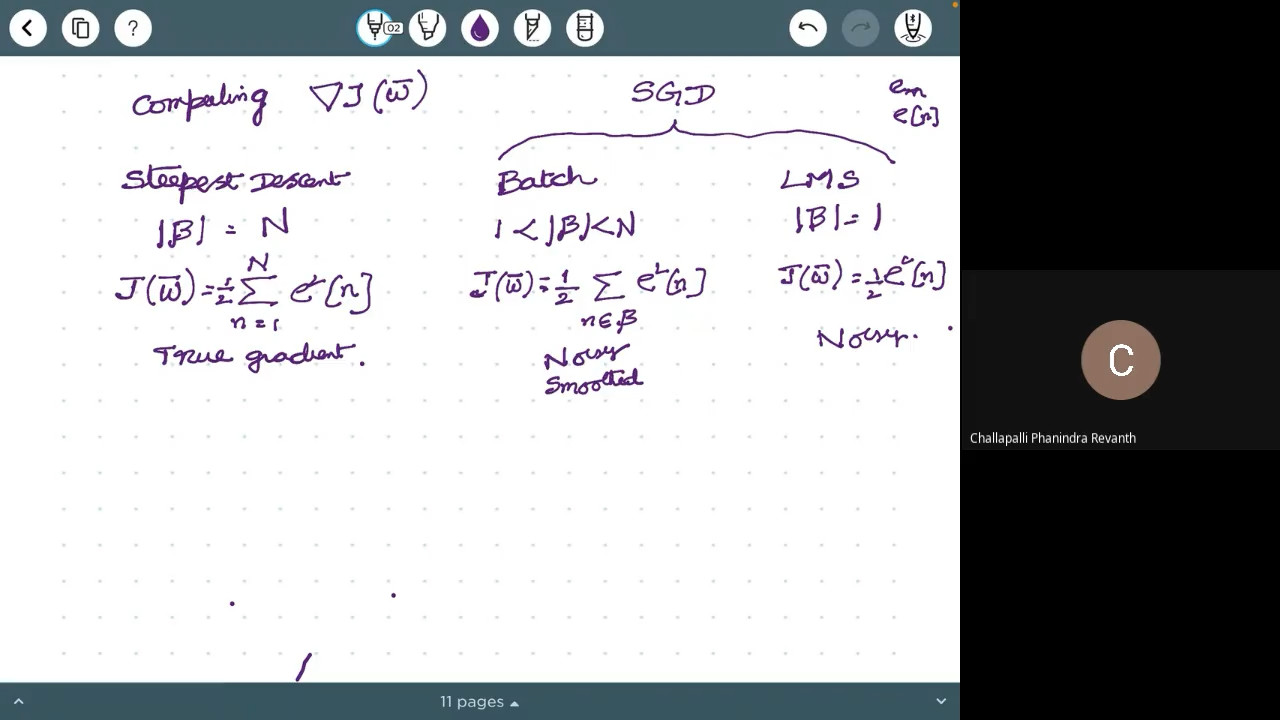 02
Computing ∇J(w̄)
SGD
em
e[n]
Steepest Descent
|B| = N
J(w̄) = 1/2 N∑n=1 e²[n]
True gradient.
Batch
1 < |B| < N
J(w̄) = 1/2 ∑n∈B e²[n]
Noisy
Smoothed
LMS
|B| = 1
J(w̄) = 1/2 e²[n]
Noisy.
C
Challapalli Phanindra Revanth
11 pages